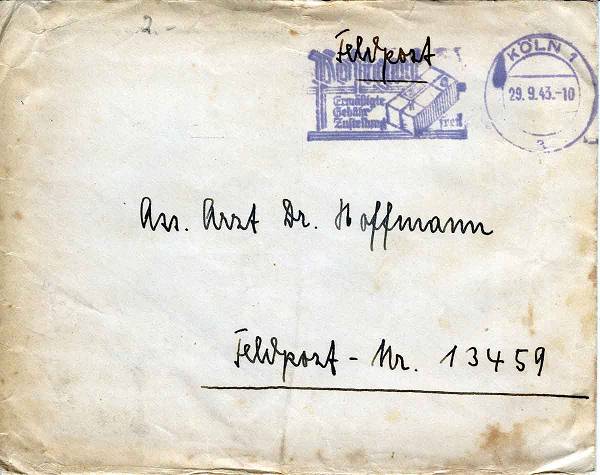 2.-
Feldpost
KÖLN 1
29.9.43.-10
a
Ermäßigte
Gebühr
Zustellung frei
Ass. Arzt Dr. Hoffmann
Feldpost - Nr. 13459